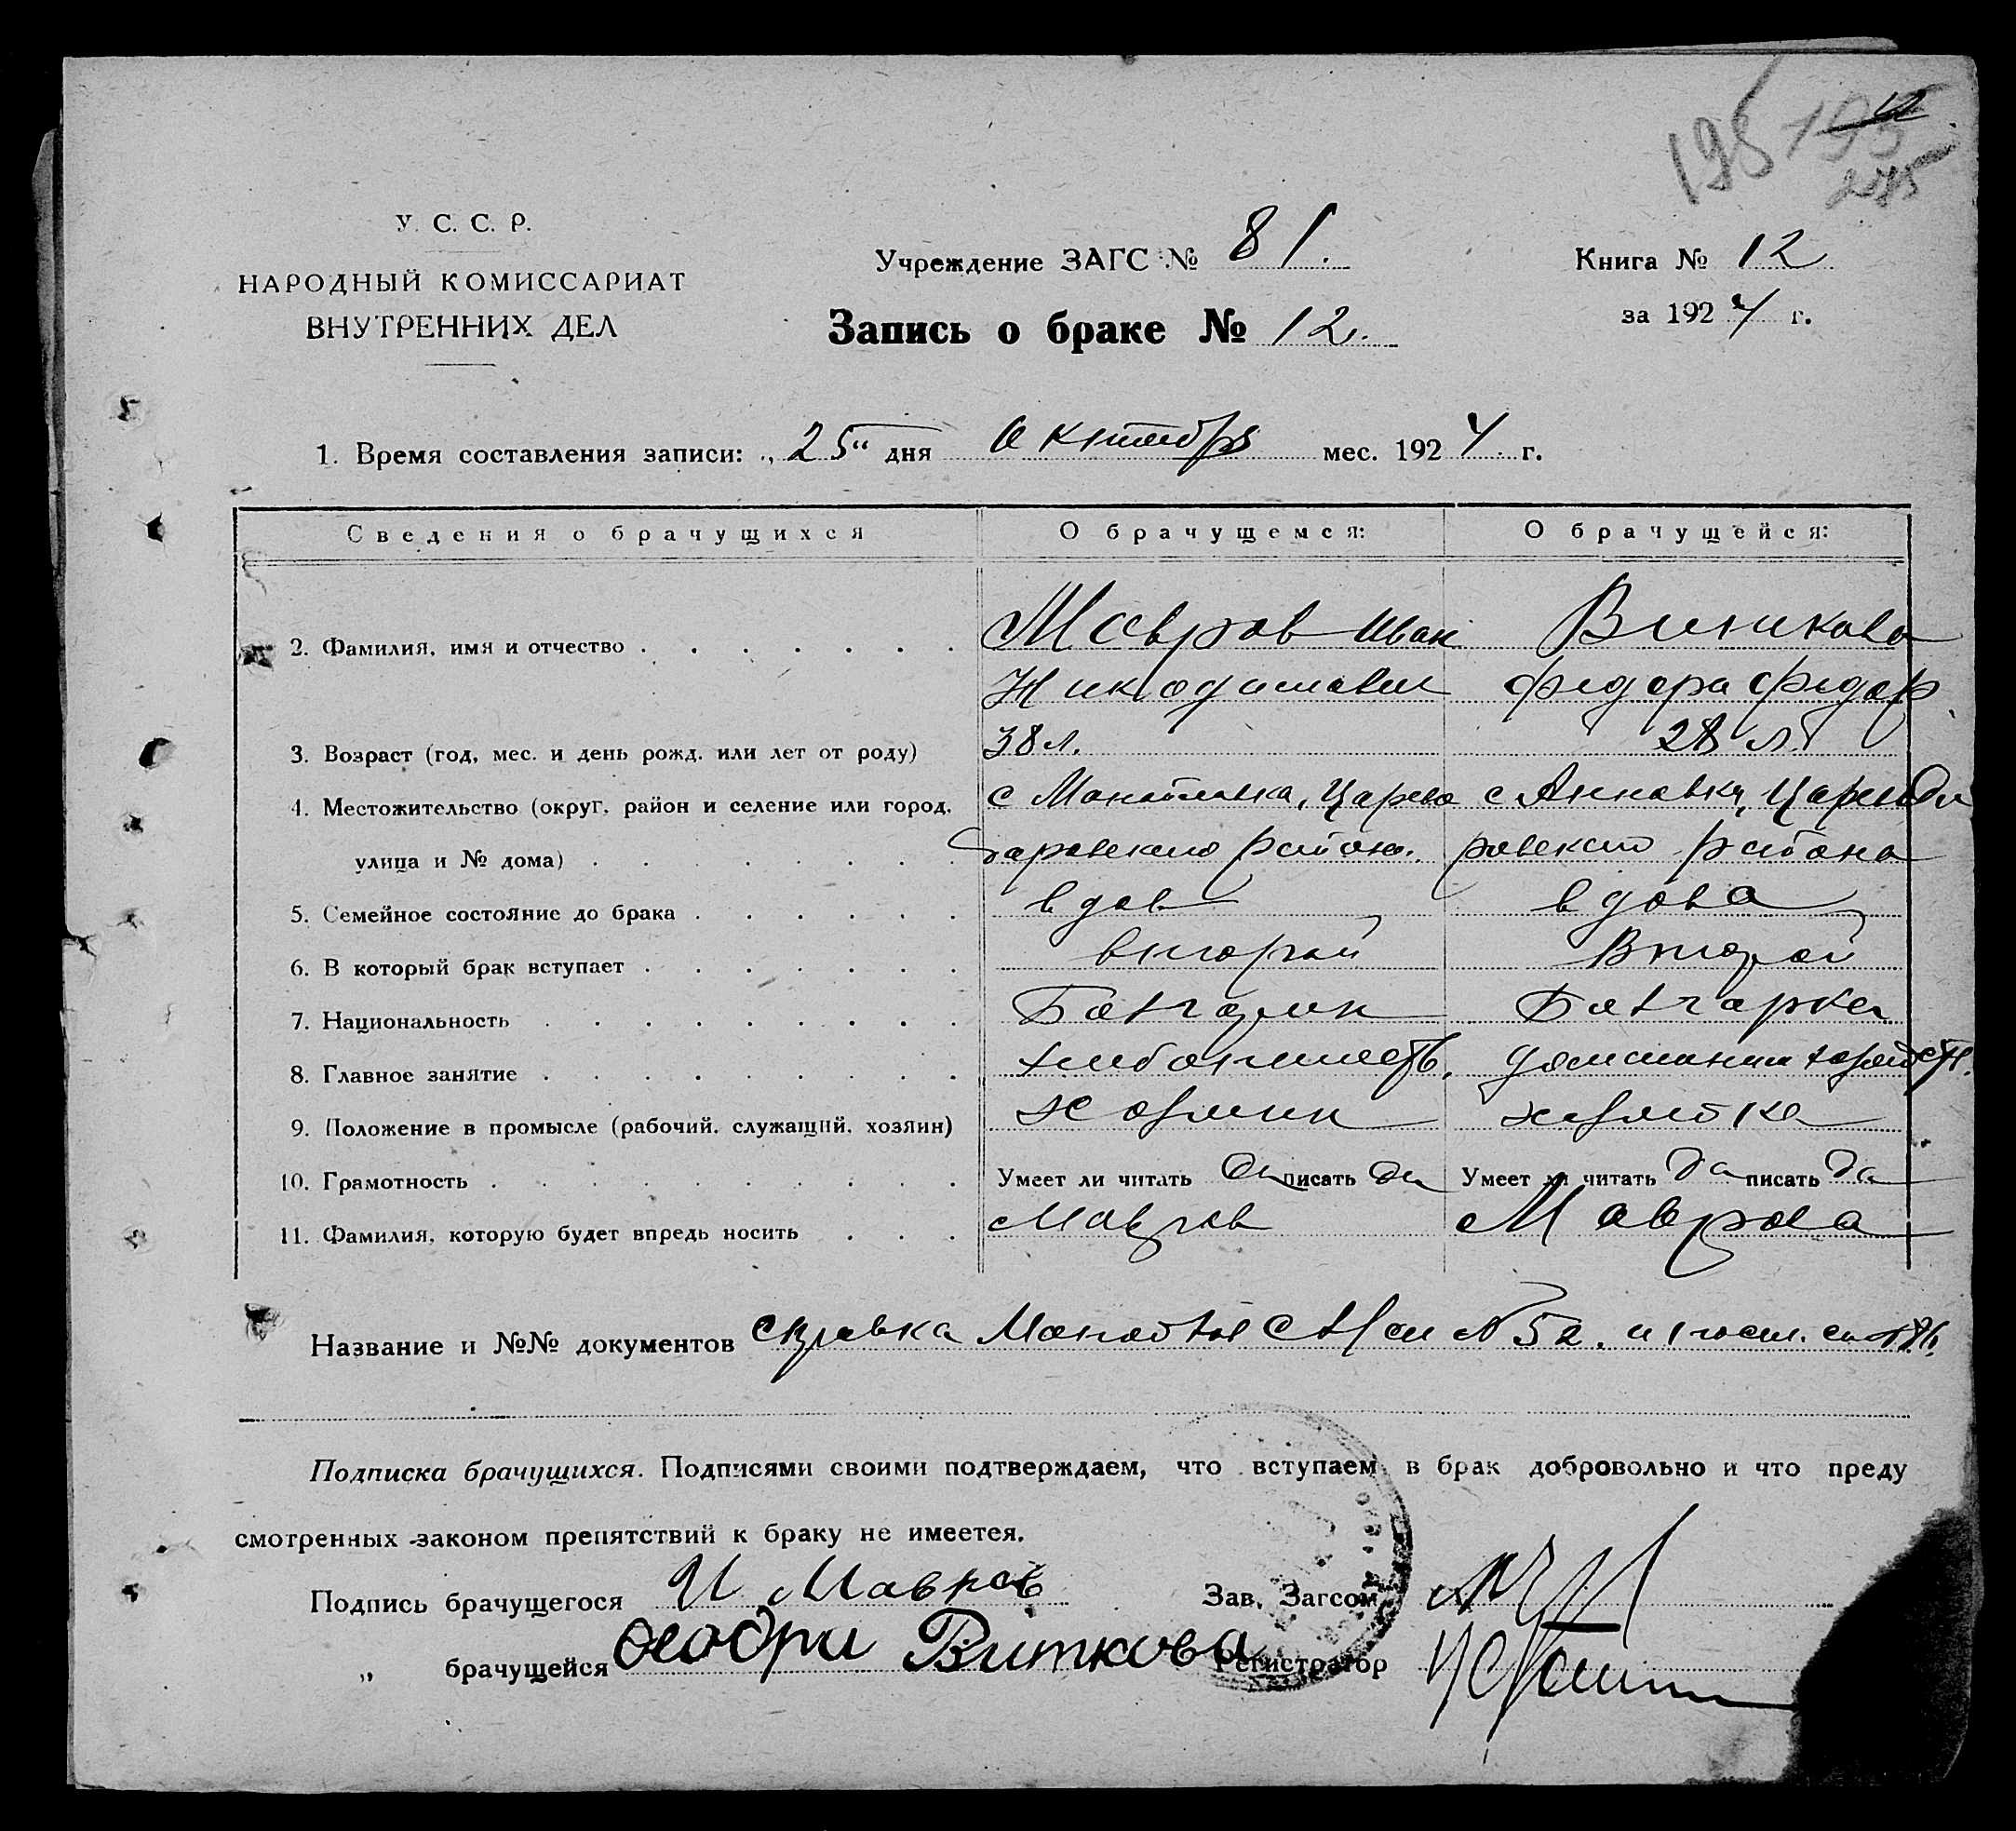 12
198 195
285
У. С. С. Р.
НАРОДНЫЙ КОМИССАРИАТ
ВНУТРЕННИХ ДЕЛ
Учреждение ЗАГС № 81.
Книга № 12
за 1924 г.
Запись о браке № 12.
1. Время составления записи: „25“ дня Октября мес. 1924 г.
Сведения о брачущихся О брачущемся: О брачущейся:
2. Фамилия, имя и отчество Мавров Иван
Федора Федор
3. Возраст (год, мес. и день рожд. или лет от роду) 38 л. 28 л.
4. Местожительство (округ, район и селение или город, с Царево с Анновка,
улица и № дома) даровского района. ровского района
5. Семейное состояние до брака вдов вдова
6. В который брак вступает второй Второй
7. Национальность Болгарин Болгарка
8. Главное занятие хлебопашеств. домашнее
9. Положение в промысле (рабочий, служащий, хозяин) Хозяин хозяйка
10. Грамотность Умеет ли читать да писать да Умеет ли читать да писать да
11. Фамилия, которую будет впредь носить Мавров Маврова
Название и №№ документов справка №52. и
Подписка брачущихся. Подписями своими подтверждаем, что вступаем в брак добровольно и что преду
смотренных законом препятствий к браку не имеется.
Подпись брачущегося И Мавров Зав. Загсом
„ брачущейся Виткова Регистратор